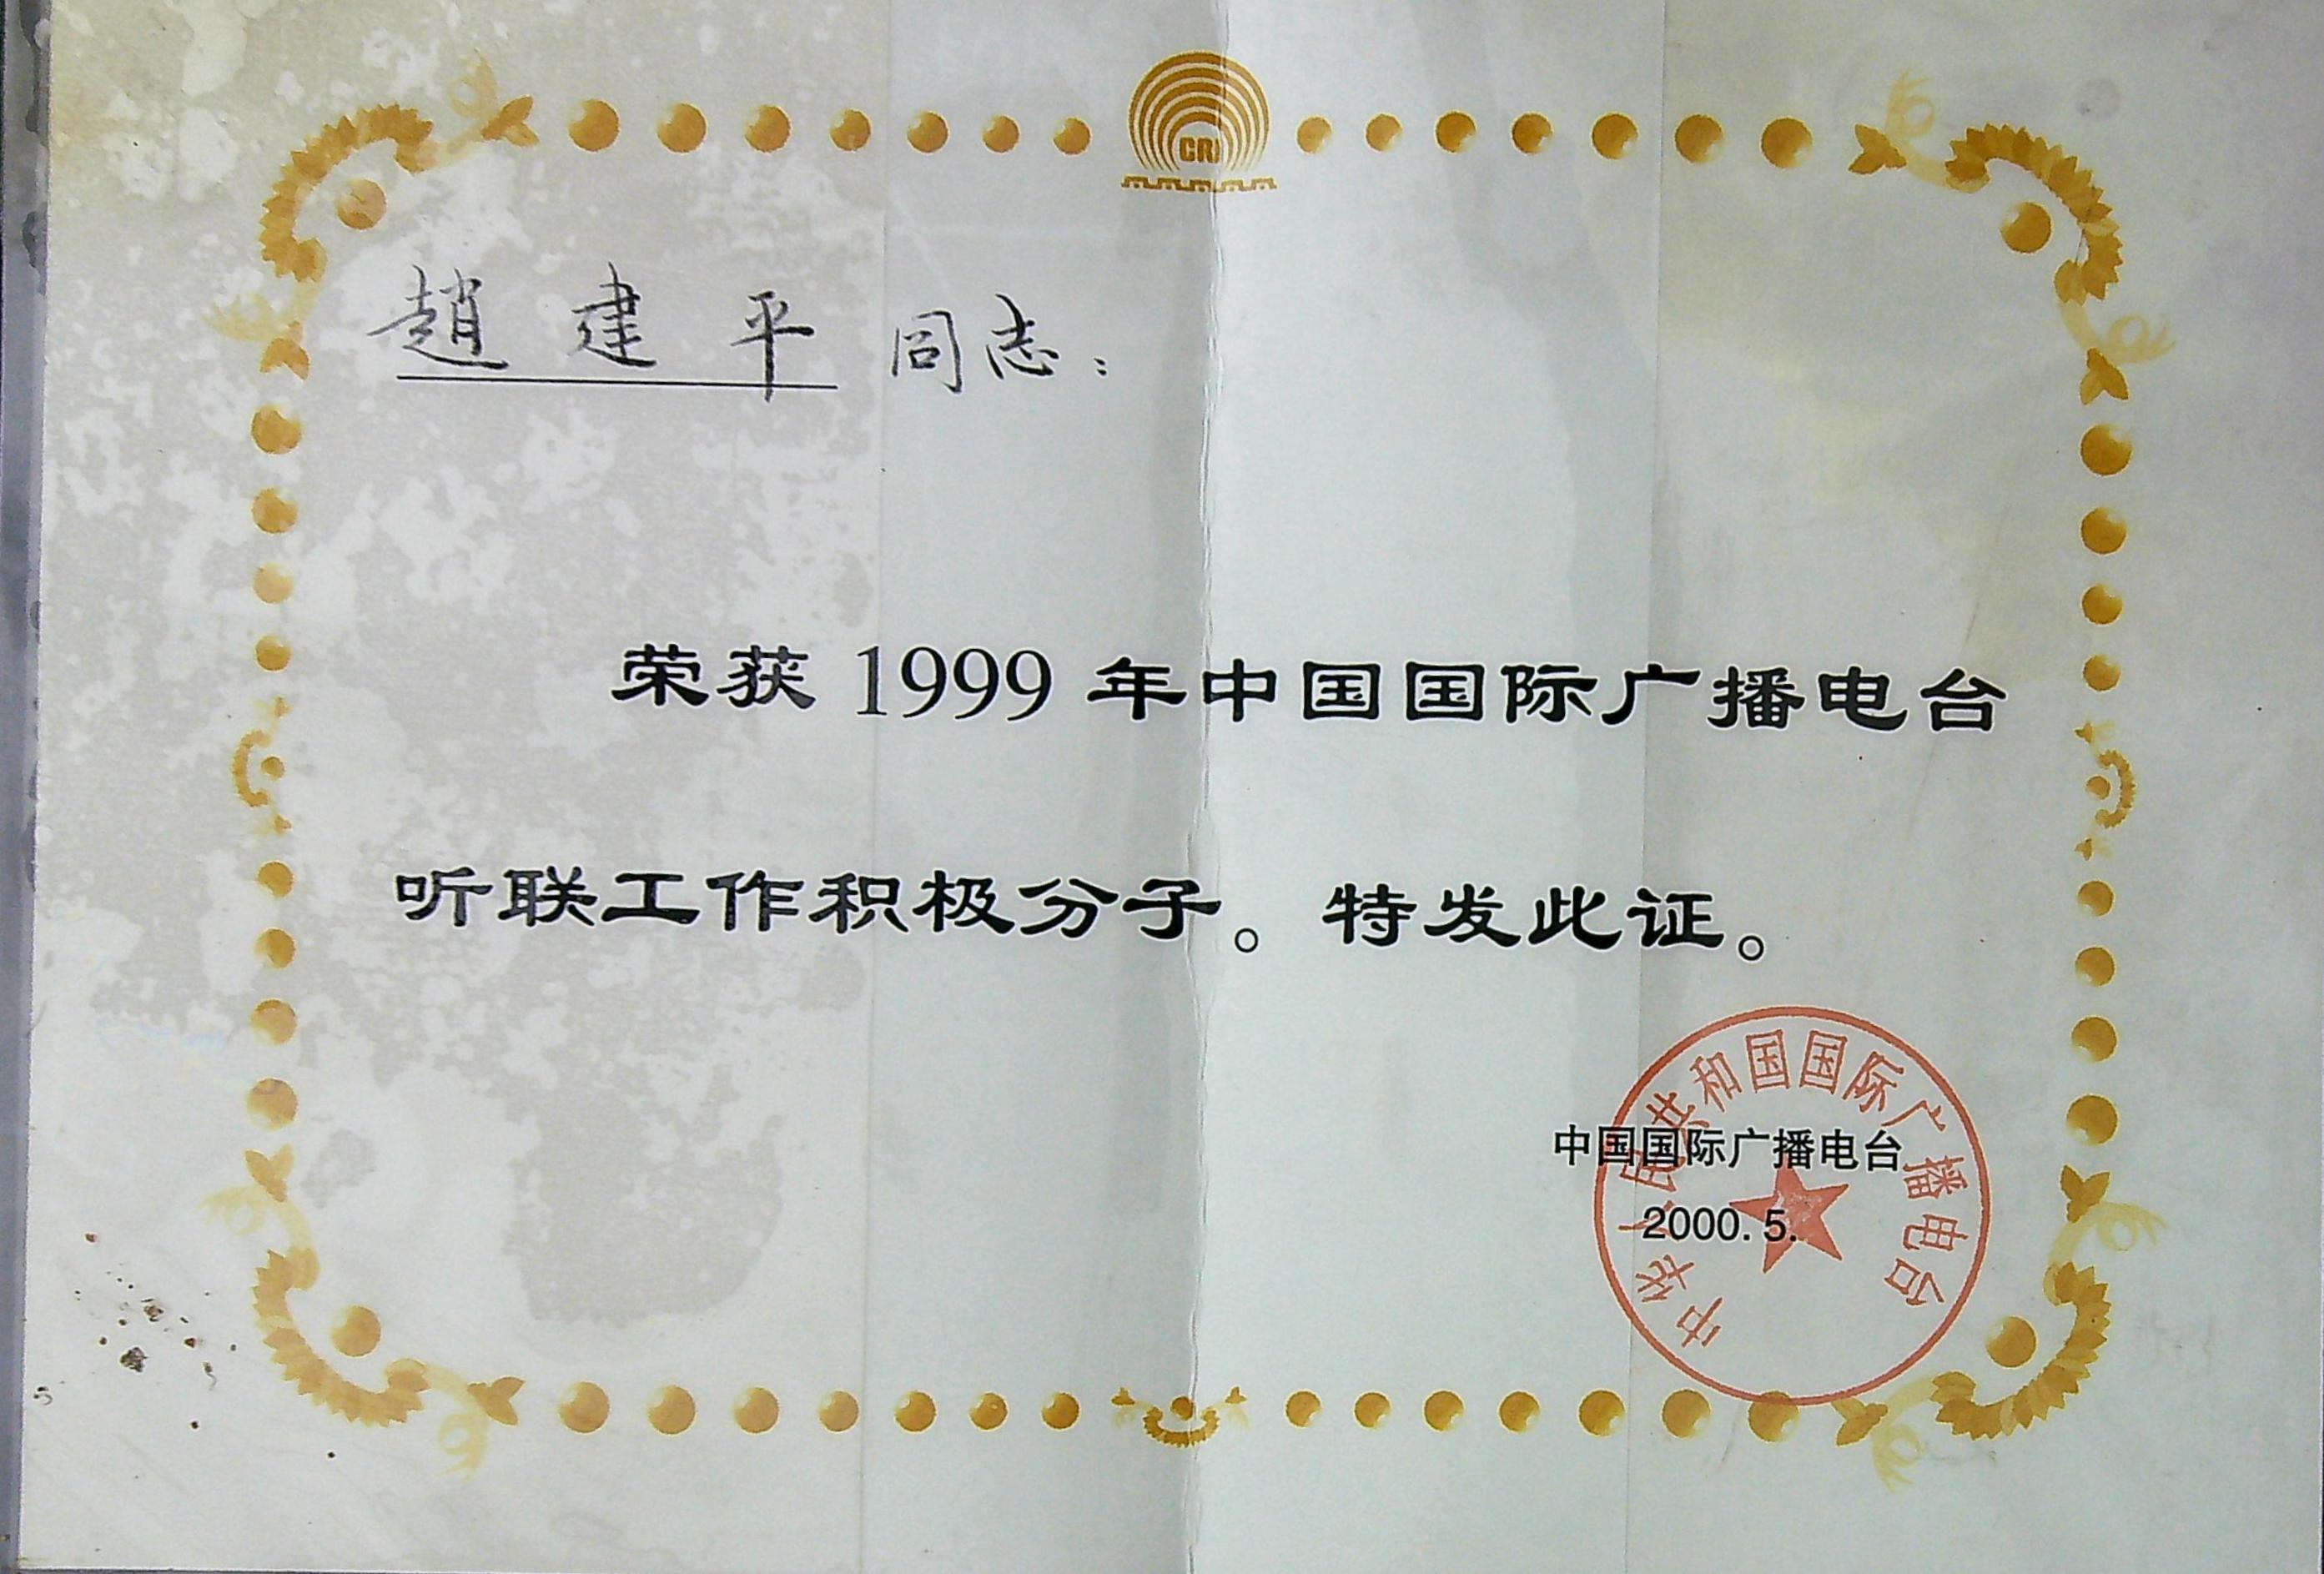 CRI
趙建平同志：
荣获1999年中国国际广播电台
听联工作积极分子。特发此证。
中国国际广播电台
2000.5.
中华人民共和国国际广播电台